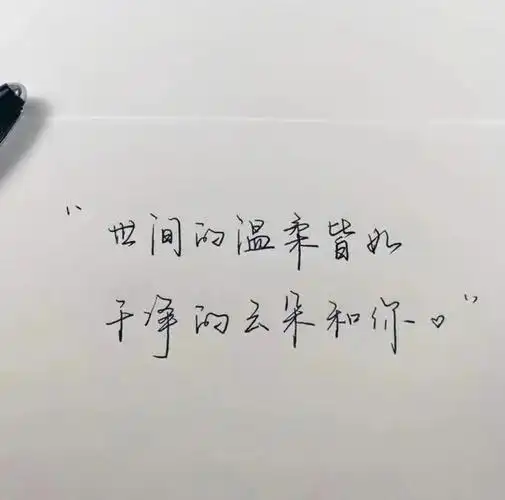 “世间的温柔皆如
干净的云朵和你。”